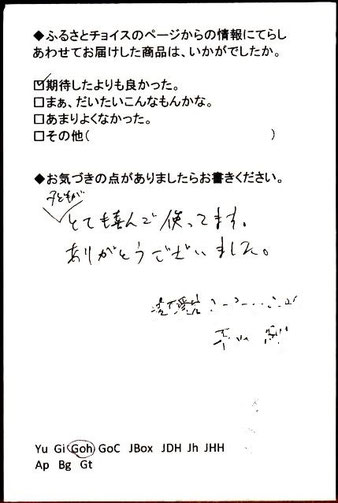 ◆ふるさとチョイスのページからの情報にてらし
あわせてお届けした商品は、いかがでしたか。
☑期待したよりも良かった。
□まぁ、だいたいこんなもんかな。
□あまりよくなかった。
□その他( )
◆お気づきの点がありましたらお書きください。
子どもが
とても喜んで使ってます。
ありがとうございました。
Yu Gi Goh GoC JBox JDH Jh JHH
Ap Bg Gt